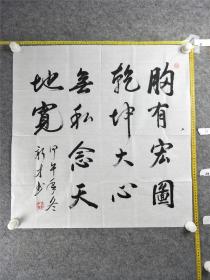 胸有宏圖
乾坤大心
無私念天
地寬
甲午年冬
新才书